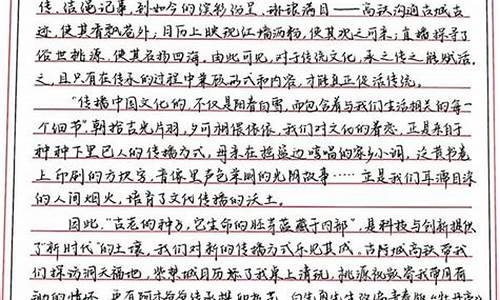 传、结绳记事,到如今的缤彩纷呈、琳琅满目——高铁沟通古城古
迹,使其香飘名外,日历上映现红墙酒粉,使其观之可亲,直播探寻了
俗世桃源,使其名扬四海。由此可见,对于传统文化,承之传之胜赋活
之,且只有在传承的过程中兼顾形式和内容,才能真正促活传统。
"传播中国文化的,不仅是阳春白雪,而包含着与我们生活相关的每一
个细节"朝拾吉光片羽,夕可相偎依依,我们对文化的眷恋,正是来自于
种种下里巴人的传播方式,母亲在摇篮边哼唱的家乡小调,泛黄书卷
上印刷的方块字,音像里声色来潮的光阴故事……正是我们耳濡目染
的人间烟火,培育了文化传播的沃土。
因此,"古老的种子,它生命的胚芽蕴藏于内部",是科技与创新提供
了"新时代"的土壤,我们对新的传播方式乐见其成。古阵城高铁带我
们探访洞天福地,紫禁城日历添了我桌上清玩,桃源视频带我带回有